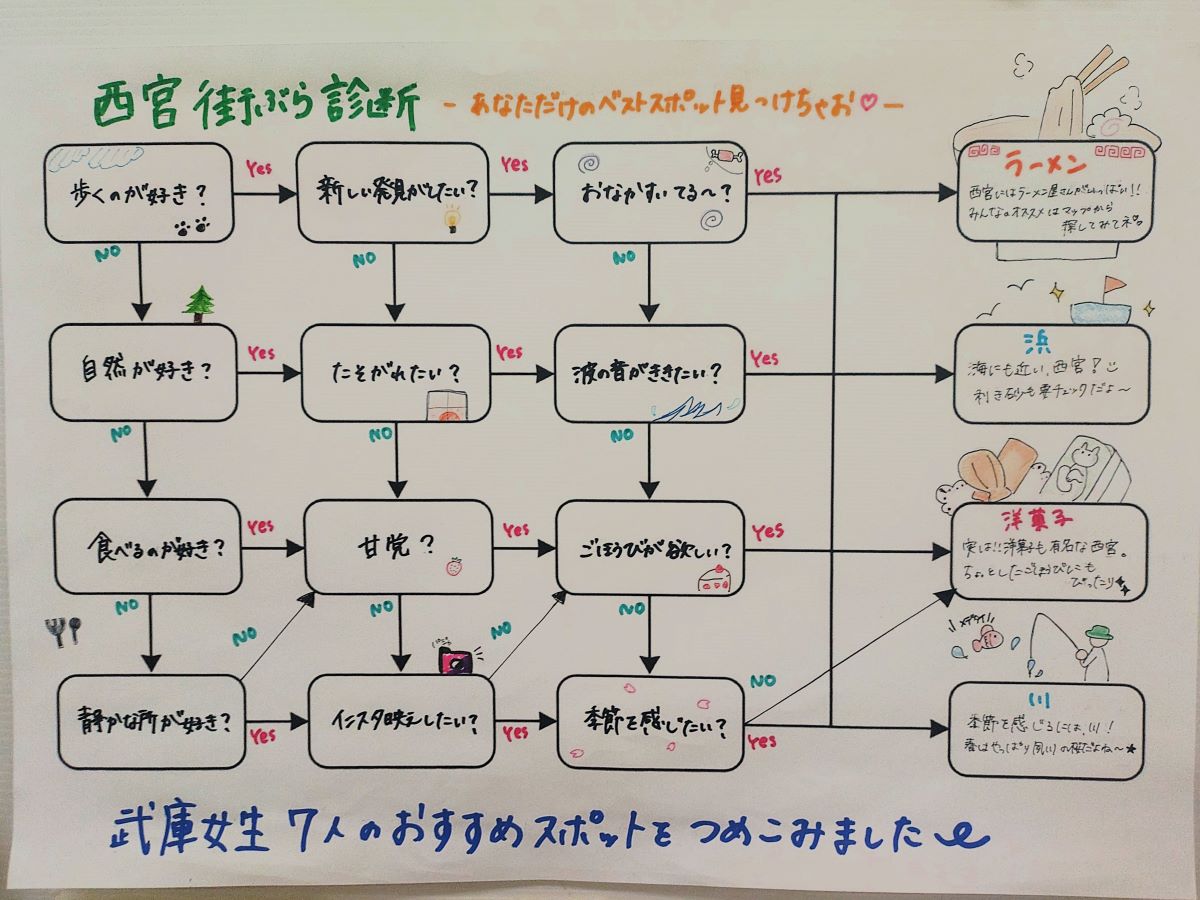 西宮街ぶら診断 - あなただけのベストスポット見つけちゃお♡ -
歩くのが好き?
Yes
NO
新しい発見がしたい?
Yes
NO
おなかすいてる〜?
Yes
NO
ラーメン
西宮にはラーメン屋さんがいっぱい!!
みんなのオススメはマップから
探してみてネ。
自然が好き?
Yes
NO
たそがれたい?
Yes
NO
波の音がききたい?
Yes
NO
浜
海にも近い、西宮!
利き砂も要チェックだよ〜
食べるのが好き?
Yes
NO
甘党?
Yes
NO
ごほうびが欲しい?
Yes
NO
洋菓子
実は!!洋菓子も有名な西宮。
ちょっとしたごほうびにも
ぴったり
静かな所が好き?
NO
Yes
インスタ映えしたい?
NO
Yes
季節を感じたい?
NO
Yes
川
季節を感じるには、川!
春はやっぱり夙川の桜だよね〜★
武庫女生7人のおすすめスポットをつめこみました